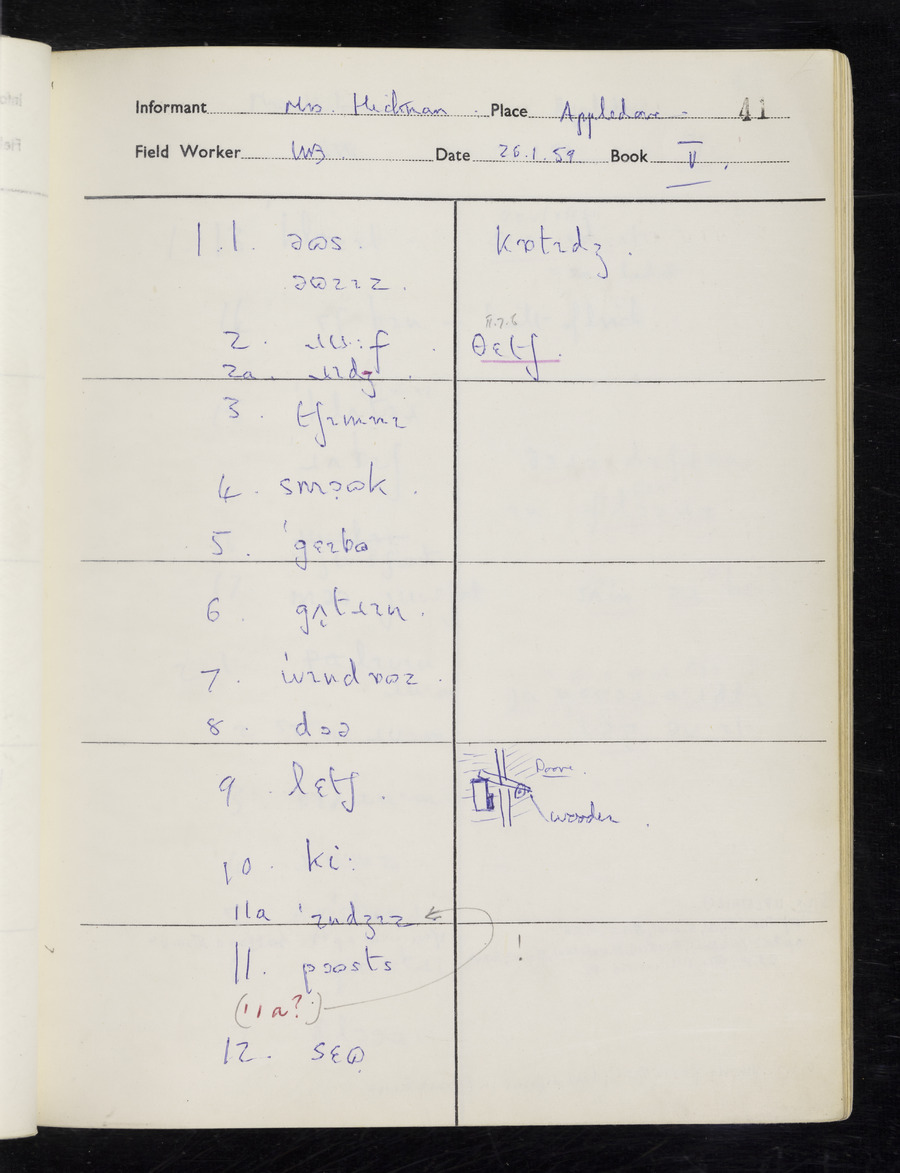 Informant Mrs. Hickman Place Appledore 41
Field Worker WB Date 26.1.59 Book V
1.1. əɷs. kɒtɪdʒ.
əɷzɪz.
2. ɹɷ:f θɛtʃ.
2a. ɹɪdʒ.
3. tʃɪmnɪ
4. sməɷk.
5. ˈgɛɪbɫ
6. gʌtɹɪn.
7. ˈwɪndɒɷz.
8. dɔə
9. lɛtʃ. Door.
wooden
10. ki:
11a ˈɪndʒɪz
11. pɔəsts !
(11a?)
12. sɛɷ